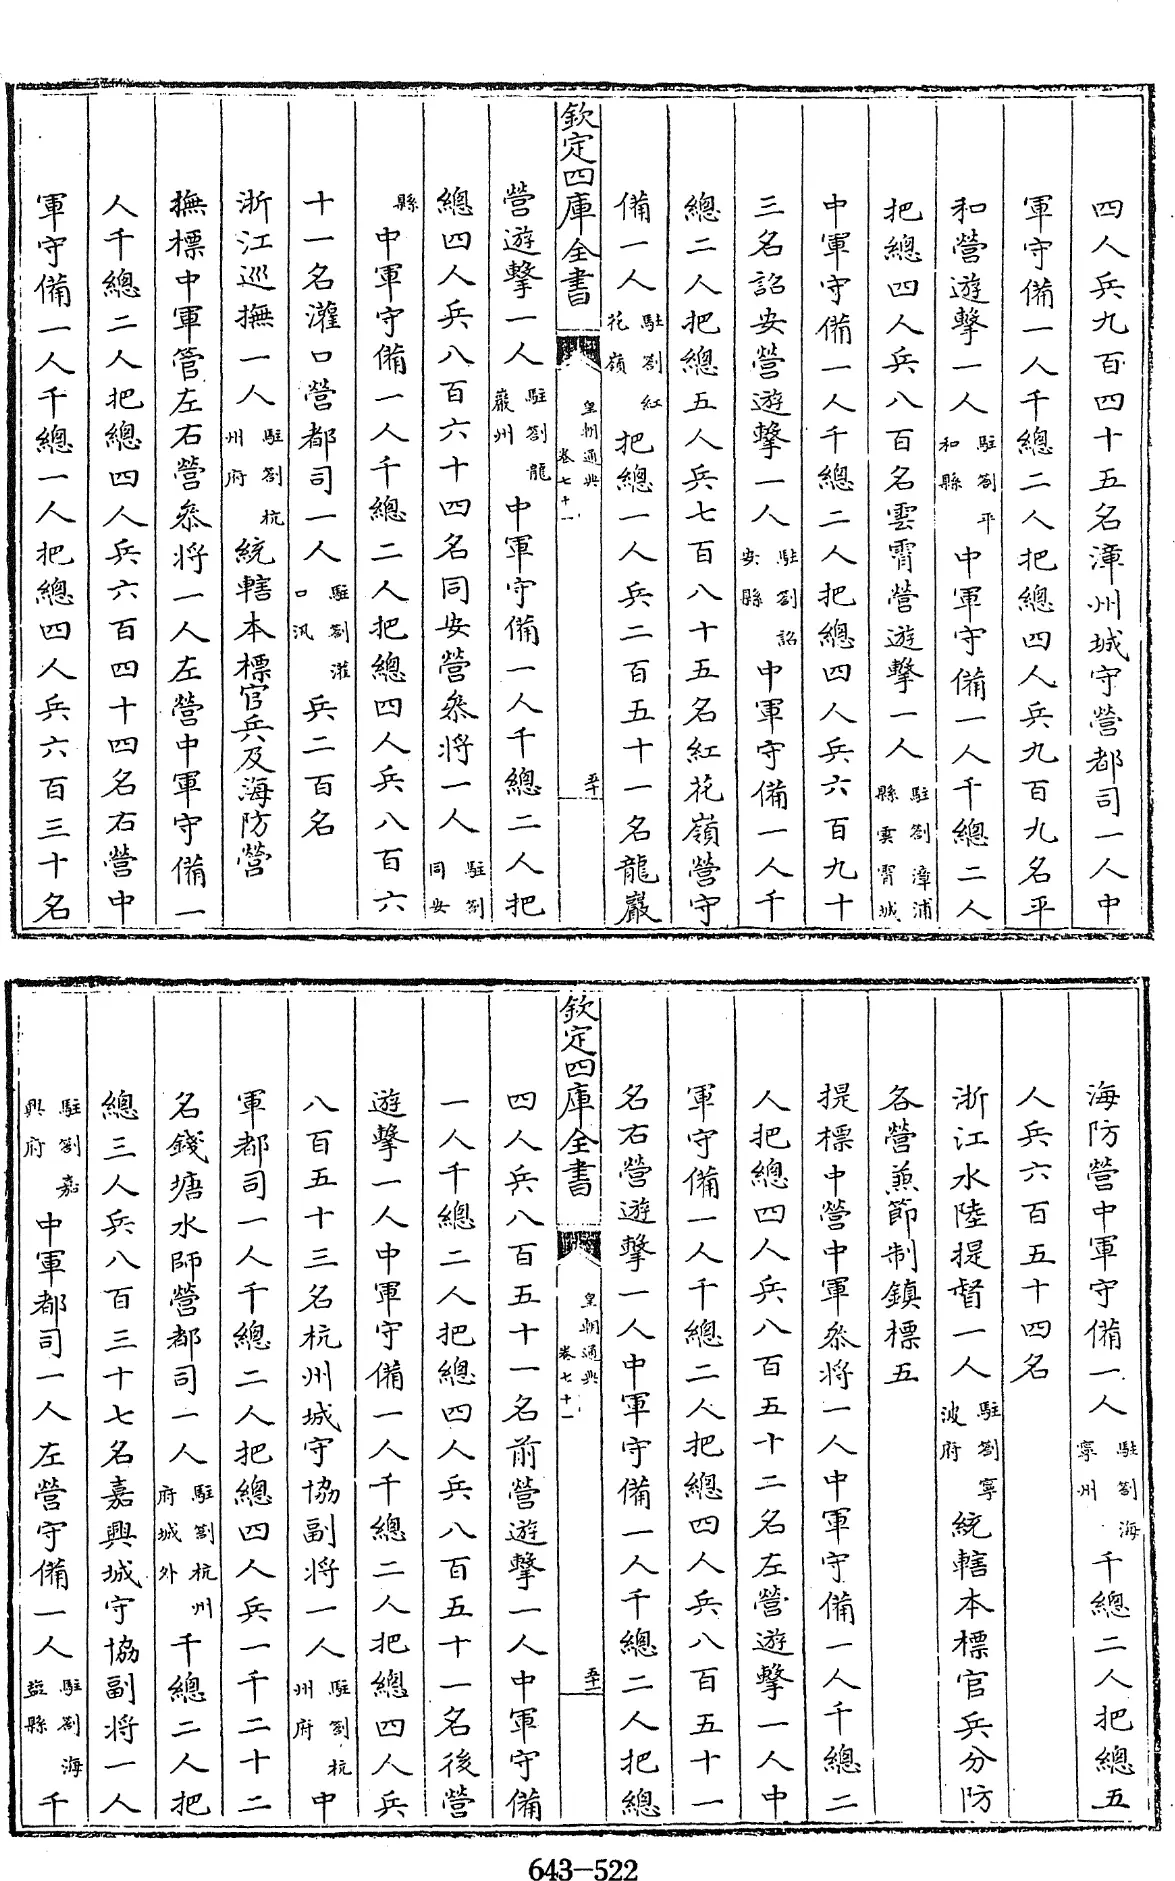 四人兵九百四十五名漳州城守營都司一人中
軍守備一人千總二人把總四人兵九百九名平
和營遊擊一人駐劄平和縣中軍守備一人千總二人
把總四人兵八百名雲霄營遊擊一人駐劄漳浦縣雲霄城
中軍守備一人千總二人把總四人兵六百九十
三名詔安營遊擊一人駐劄詔安縣中軍守備一人千
總二人把總五人兵七百八十五名紅花嶺營守
備一人駐劄紅花嶺把總一人兵二百五十一名龍巖
欽定四庫全書
皇朝通典
卷七十一
五十
營遊擊一人駐劄龍巖州中軍守備一人千總二人把
總四人兵八百六十四名同安營叅將一人駐劄同安
縣中軍守備一人千總二人把總四人兵八百六
十一名灌口營都司一人駐劄灌口汛兵二百名
浙江巡撫一人駐劄杭州府統轄本標官兵及海防營
撫標中軍管左右營叅將一人左營中軍守備一
人千總二人把總四人兵六百四十四名右營中
軍守備一人千總一人把總四人兵六百三十名
海防營中軍守備一人駐劄海寧州千總二人把總五
人兵六百五十四名
浙江水陸提督一人駐劄寧波府統轄本標官兵分防
各營兼節制鎮標五
提標中營中軍叅將一人中軍守備一人千總二
人把總四人兵八百五十二名左營遊擊一人中
軍守備一人千總二人把總四人兵八百五十一
名右營遊擊一人中軍守備一人千總二人把總
欽定四庫全書
皇朝通典
卷七十一
五十一
四人兵八百五十一名前營遊擊一人中軍守備
一人千總二人把總四人兵八百五十一名後營
遊擊一人中軍守備一人千總二人把總四人兵
八百五十三名杭州城守協副將一人駐劄杭州府中
軍都司一人千總二人把總四人兵一千二十二
名錢塘水師營都司一人駐劄杭州府城外千總二人把
總三人兵八百三十七名嘉興城守協副將一人
駐劄嘉興府中軍都司一人左營守備一人駐劄海鹽縣千
643-522